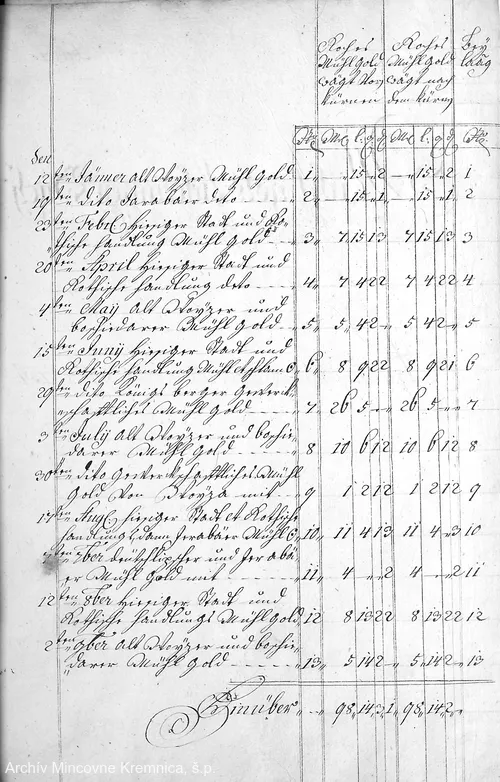 Rohes Rohes Bey
Mühl Gold Mühl Gold laag
wägt Vor wägt nach
Körnen dem Körnen
No M l q d M l q d No
Den
12ten Jänner alt 1 15 2 15 2 1
Mühl Gold
19ten dito deto 2 15 1 15 1 2
23ten Febr hiesiger Stadt und Ro-
thische handlung Mühl Gold 3 7 15 13 7 15 13 3
20ten April hiesiger Stadt und
Rothische handlung deto 4 7 4 22 7 4 22 4
4ten Maij alt und
Mühl Gold 5 5 4 2 5 4 2 5
15ten Junij hiesiger Stadt und
Rothische handlung Mühl 6 8 9 22 8 9 21 6
29ten dito Königs berger Gewerk-
schaftliches Mühl Gold 7 26 5 26 5 7
3ten Julij alt und
Mühl Gold 8 10 6 12 10 6 12 8
30ten dito Gewerkschafftliches Mühl
Gold Von mit 9 1 2 12 1 2 12 9
17ten Aug hiesiger Stadt et Rothische
handlung, dann Mühl G 10 11 4 13 11 4 3 10
7ber und
Mühl Gold mit 11 4 2 4 2 11
12ten 8ber Hiesiger Stadt und
Rothische handlungs Mühl Gold 12 8 13 22 8 13 22 12
2ten 9ber alt und
Mühl Gold 13 5 14 2 5 14 2 13
Hinüber 98 14 3 1 98 14 2
Archív Mincovne Kremnica, š.p.